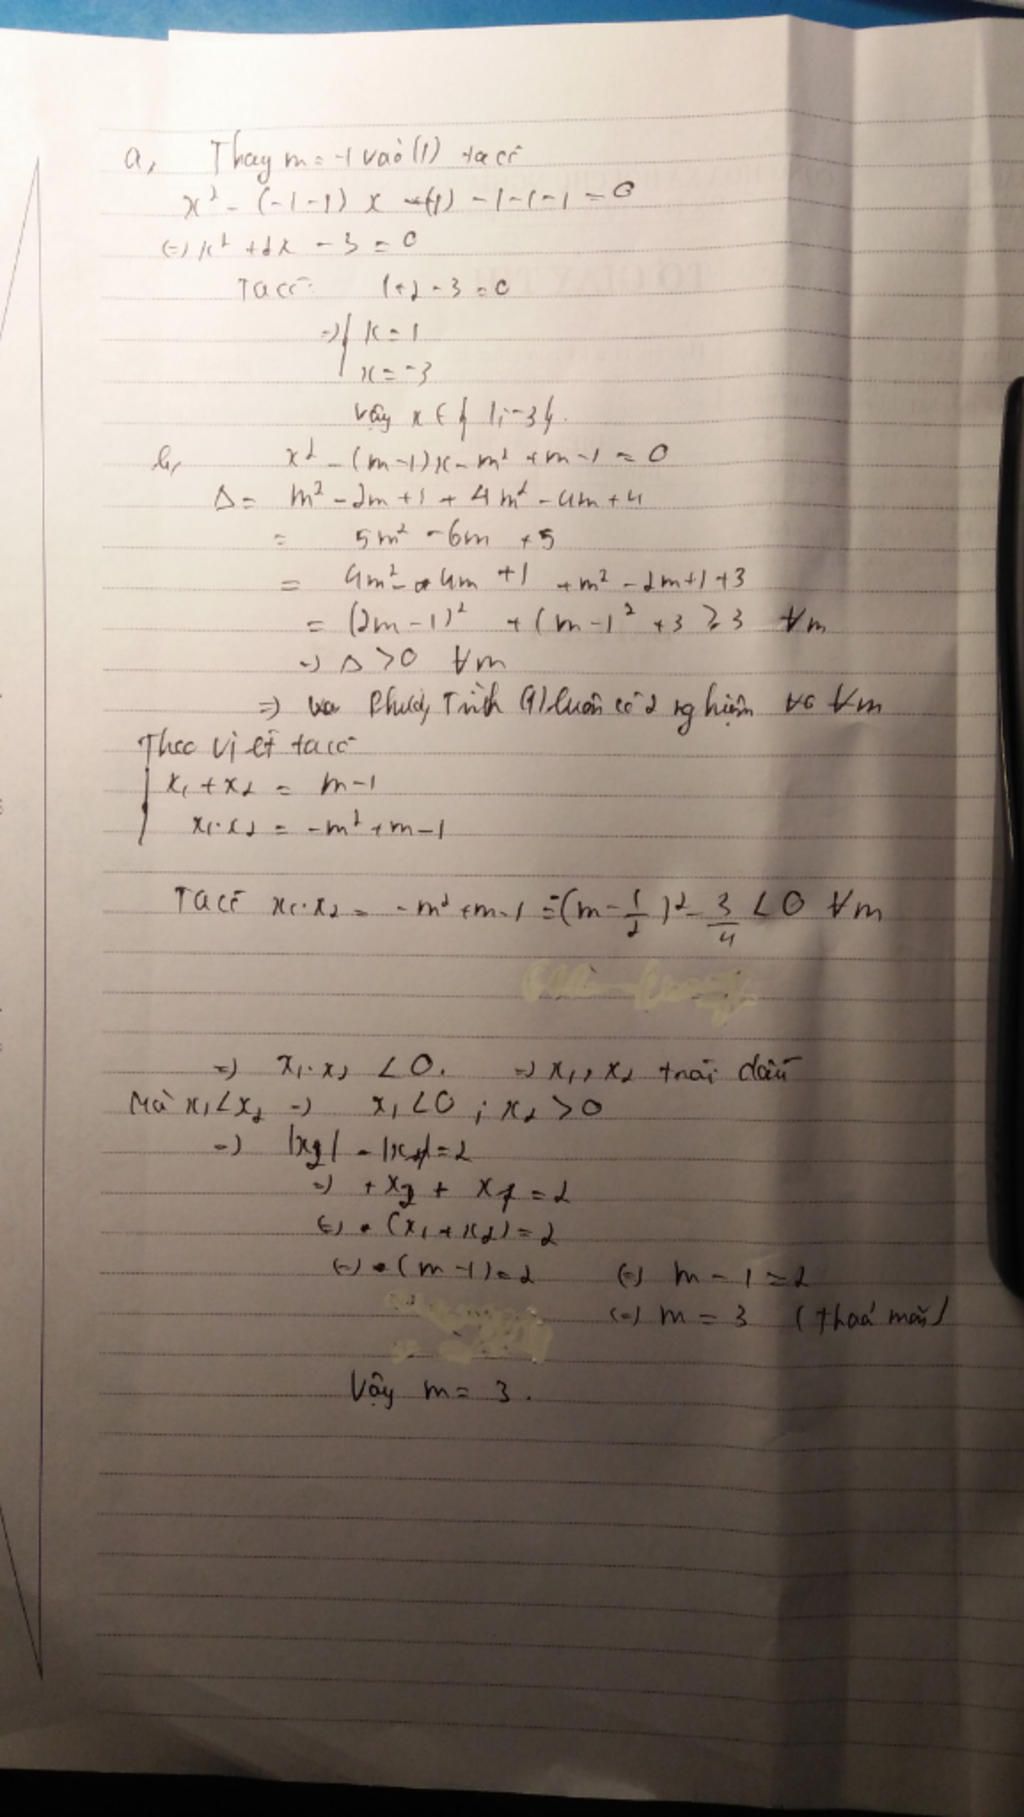 a, Thay m = -1 vào (1) ta có
x² - (-1-1) x -(1) -1-1-1 = 0
(=) x² + 2x - 3 = 0
Ta có: 1+2-3 = 0
=) x = 1
x = -3
Vậy x ∈ { 1; -3}.
b, x² - (m-1)x - m² + m - 1 = 0
Δ = m² - 2m + 1 + 4m² - 4m + 4
= 5m² - 6m + 5
= 4m² - 4m + 1 + m² - 2m + 1 + 3
= (2m-1)² + (m-1² + 3 ≥ 3 ∀m
=) Δ > 0 ∀m
=) Phương Trình (1) luôn có 2 nghiệm ∀m
Theo Vi ét ta có
x₁ + x₂ = m-1
x₁.x₂ = -m² + m - 1
Ta có x₁.x₂ = -m² + m - 1 = -(m - 1/2)² - 3/4 < 0 ∀m
=) x₁.x₂ < 0. =) x₁, x₂ trái dấu
Mà x₁ < x₂ =) x₁ < 0 ; x₂ > 0
=) |x₂| - |x₁| = 2
=) + x₂ + x₁ = 2
(=) (x₁ + x₂) = 2
(=) (m-1) = 2 (=) m - 1 = 2
(=) m = 3 (thoả mãn)
Vậy m = 3.